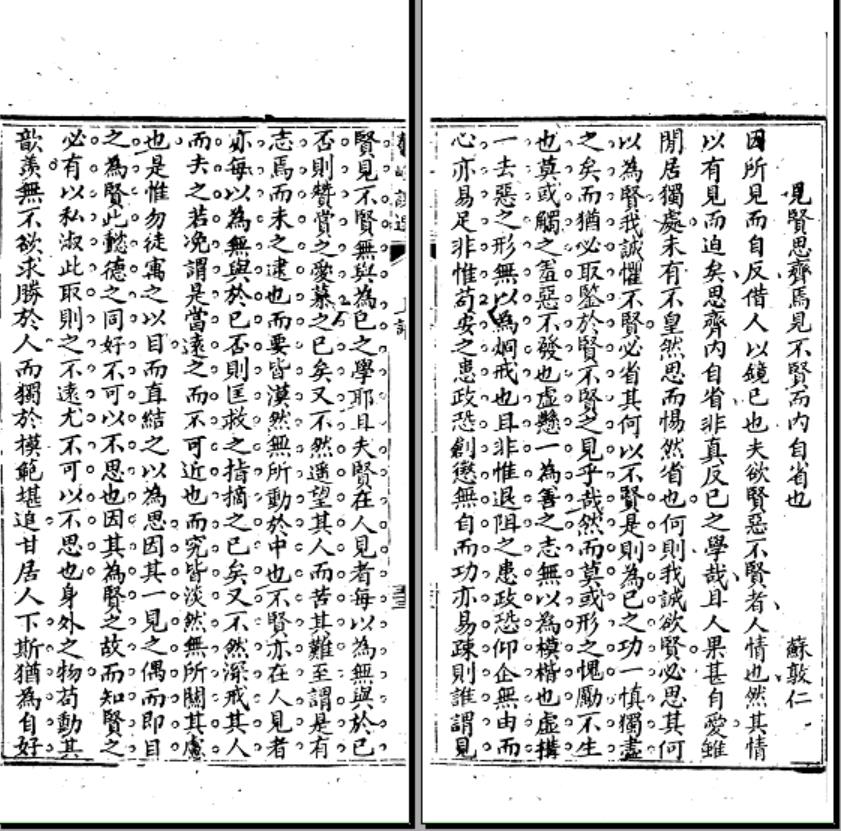 見賢思齊焉見不賢而內自省也 蘇敦仁
因所見而自反借人以鏡己也夫欲賢惡不賢者人情也然其情
以有見而迫矣思齊內自省非真反己之學哉且人果甚自愛雖
閒居獨處未有不皇然思而惕然省也何則我誠欲賢必思其何
以為賢我誠懼不賢必省其何以不賢是則為己之功一慎獨盡
之矣而猶必取鑒於賢不賢之見乎哉然而莫或形之愧勵不生
也莫或觸之羞惡不發也虛懸一為善之志無以為模楷也虛構
一去惡之形無以為炯戒也且非惟退阻之患政恐仰企無由而
心亦易足非惟苟安之患政恐創懲無自而功亦易疎則誰謂見
賢見不賢無與為己之學耶且夫賢在人見者每以為無與於己
否則贊賞之愛慕之已矣又不然遥望其人而苦其難至謂是有
志焉而未之逮也而要皆漠然無所動於中也不賢亦在人見者
亦每以為無與於己否則匡救之指摘之已矣又不然深戒其人
而夫之若浼謂是當遠之而不可近也而究皆淡然無所關其慮
也是惟勿徒寓之以目而直結之以為思因其一見之偶而即目
之為賢此懿德之同好不可以不思也因其為賢之故而知賢之
必有以私淑此取則之不遠尤不可以不思也身外之物苟動其
歆羨無不欲求勝於人而獨於模範堪追甘居人下斯猶為自好